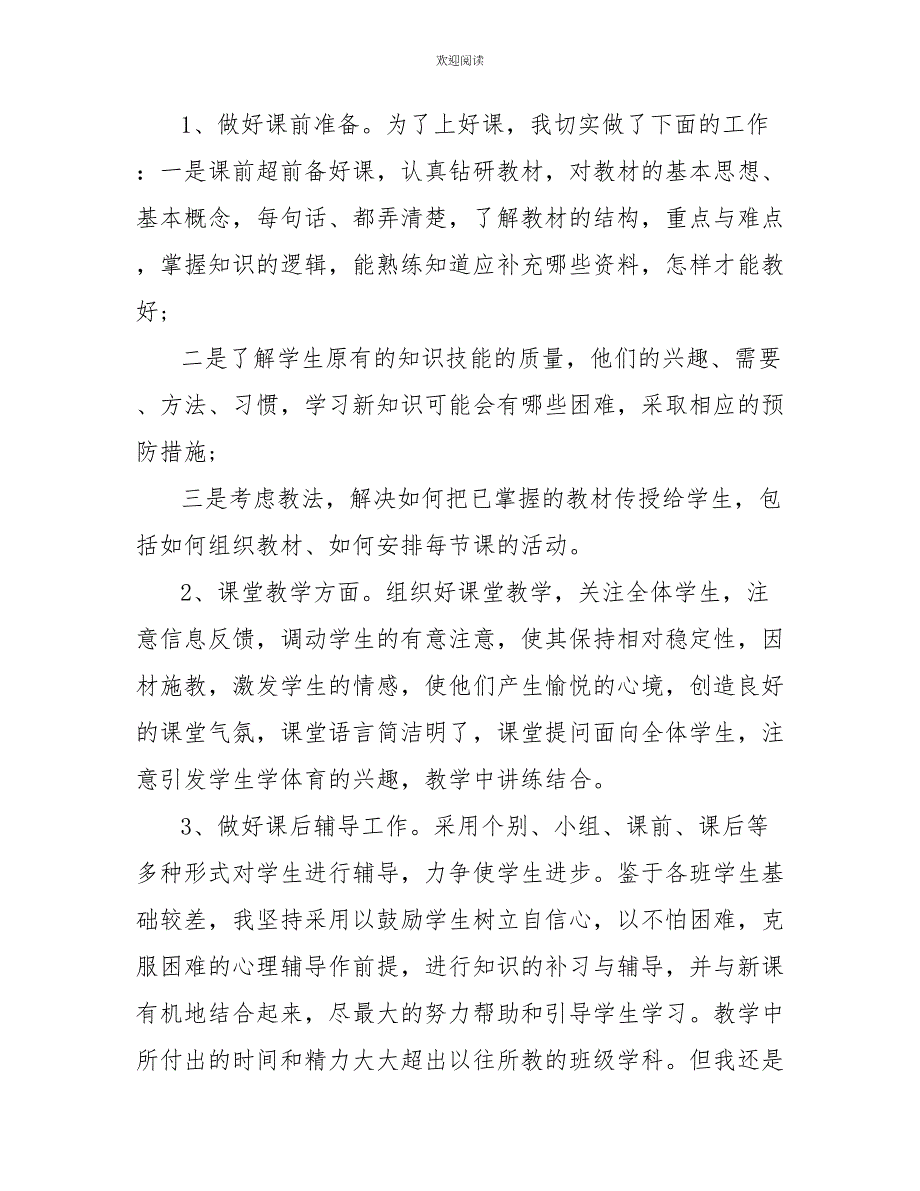 欢迎阅读
1、做好课前准备。为了上好课，我切实做了下面的工作
：一是课前超前备好课，认真钻研教材，对教材的基本思想、
基本概念，每句话、都弄清楚，了解教材的结构，重点与难点
，掌握知识的逻辑，能熟练知道应补充哪些资料，怎样才能教
好;
二是了解学生原有的知识技能的质量，他们的兴趣、需要
、方法、习惯，学习新知识可能会有哪些困难，采取相应的预
防措施;
三是考虑教法，解决如何把已掌握的教材传授给学生，包
括如何组织教材、如何安排每节课的活动。
2、课堂教学方面。组织好课堂教学，关注全体学生，注
意信息反馈，调动学生的有意注意，使其保持相对稳定性，因
材施教，激发学生的情感，使他们产生愉悦的心境，创造良好
的课堂气氛，课堂语言简洁明了，课堂提问面向全体学生，注
意引发学生学体育的兴趣，教学中讲练结合。
3、做好课后辅导工作。采用个别、小组、课前、课后等
多种形式对学生进行辅导，力争使学生进步。鉴于各班学生基
础较差，我坚持采用以鼓励学生树立自信心，以不怕困难，克
服困难的心理辅导作前提，进行知识的补习与辅导，并与新课
有机地结合起来，尽最大的努力帮助和引导学生学习。教学中
所付出的时间和精力大大超出以往所教的班级学科。但我还是